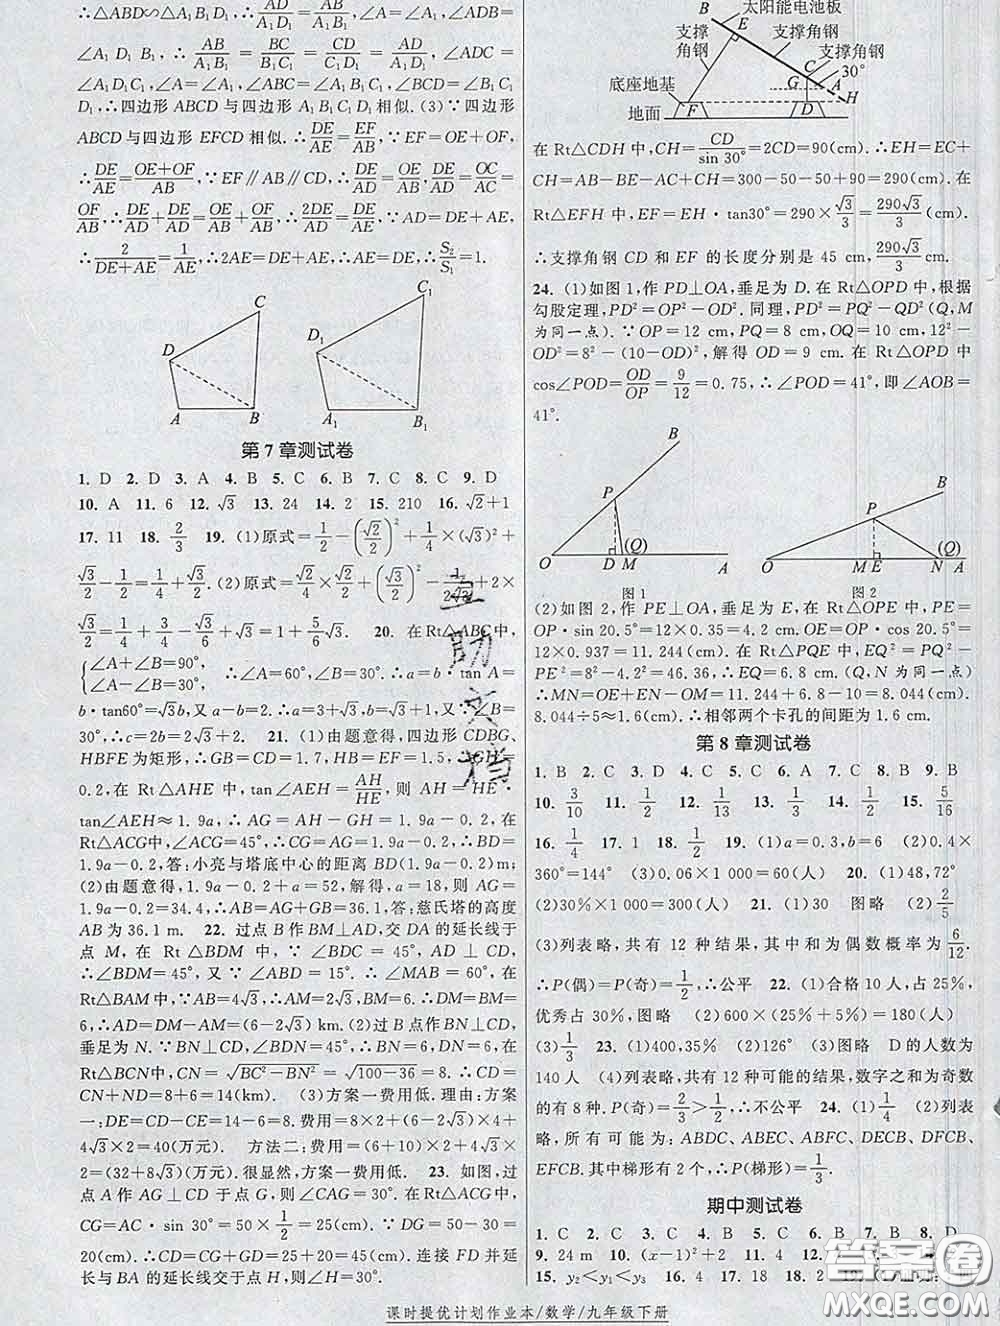 △ABD∽△A₁B₁D₁, ∴AD/A₁D₁=AB/A₁B₁, ∠A=∠A₁, ∠ADB=
∠A₁D₁B₁. ∴AB/A₁B₁=BC/B₁C₁=CD/C₁D₁=AD/A₁D₁, ∠ADC=
∠A₁D₁C₁, ∠A=∠A₁, ∠ABC=∠A₁B₁C₁, ∠C=∠C₁.
∴四边形ABCD与四边形A₁B₁C₁D₁相似. (3)∵四边形
ABCD与四边形EFCD相似. ∴DE/AE=EF/AB, ∵EF=OE+OF,
∴DE/AE=(OE+OF)/AB, ∵EF∥AB∥CD, ∴DE/AD=OE/AB, DE/AD=OC/AC=
OF/AB, ∴DE/AD+DE/AD=OE/AB+OF/AB, ∴2DE/AD=DE/AE, ∵AD=DE+AE,
∴2/(DE+AE)=1/AE, ∴2AE=DE+AE, ∴AE=DE, ∴S₂/S₁=1.
D C A B D₁ C₁ A₁ B₁
第7章测试卷
1. D 2. D 3. A 4. B 5. C 6. B 7. C 8. C 9. D
10. A 11. 6 12. √3 13. 24 14. 2 15. 210 16. √2+1
17. 11 18. 2/3 19. (1)原式=1/2-(√2/2)²+1/4×(√3)²+
√3/2-1/2=1/4+√3/2. (2)原式=√2/4×√2/2+(√3/2)²-1/(2√3)+2×
√3/2=1/4+3/4-√3/6+√3=1+5/6√3. 20. 在Rt△ABC中,
{∠A+∠B=90°, ∠A-∠B=30°} ∴∠A=60°, ∠B=30°. ∴a=b·tan A=
b·tan60°=√3b, 又a-b=2. ∴a=3+√3, b=√3+1, 又∵∠B=
30°, ∴c=2b=2√3+2. 21. (1)由题意得, 四边形CDBG,
HBFE为矩形, ∴GB=CD=1.7, HB=EF=1.5, ∴GH=
0.2, 在Rt△AHE中, tan∠AEH=AH/HE, 则AH=HE·
tan∠AEH≈1.9a, ∴AG=AH-GH=1.9a-0.2, 在
Rt△ACG中, ∠ACG=45°, ∴CG=AG=1.9a-0.2, ∴BD=
1.9a-0.2, 答:小亮与塔底中心的距离BD(1.9a-0.2)m;
(2)由题意得, 1.9a-0.2+a=52, 解得, a=18, 则AG=
1.9a-0.2=34.4, ∴AB=AG+GB=36.1, 答:慈氏塔的高度
AB为36.1 m. 22. 过点B作BM⊥AD, 交DA的延长线于
点M, 在Rt△BDM中, ∵∠BDC=45°, AD⊥CD,
∴∠BDM=45°, 又∵∠ABD=15°. ∴∠MAB=60°, 在
Rt△BAM中, ∵AB=4√3, ∴AM=2√3, BM=6. ∴DM=BM=
6, ∴AD=DM-AM=(6-2√3) km. (2)过B点作BN⊥CD,
垂足为N. ∵BN⊥CD, ∠BDN=45°, ∴BN=6, ∴DN=6, 在
Rt△BCN中, CN=√(BC²-BN²)=√(100-36)=8. ∴CD=
CN+ND=8+6=14(km). (3)方案一费用低. 理由:方案
一:DE=CD-CE=14-6=8. 费用=8×2+6×4=
4√3×2=40(万元). 方法二:费用=(6+10)×2+4√3×2
=(32+8√3)(万元). 很显然, 方案一费用低. 23. 如图, 过
点A作AG⊥CD于点G, 则∠CAG=30°. 在Rt△ACG中,
CG=AC·sin30°=50×1/2=25(cm). ∵DG=50-30=
20(cm). ∴CD=CG+DG=25+20=45(cm). 连接FD并延
长与BA的延长线交于点H, 则∠H=30°.
B 太阳能电池板
E 支撑角钢 支撑角钢 支撑角钢
C G 30° A H
底座地基
地面 F D
在Rt△CDH中, CH=CD/sin 30°=2CD=90(cm). ∴EH=EC+
CH=AB-BE-AC+CH=300-50-50+90=290(cm). 在
Rt△EFH中, EF=EH·tan30°=290×√3/3=290√3/3(cm).
∴支撑角钢CD和EF的长度分别是45 cm, 290√3/3 cm.
24. (1)如图1, 作PD⊥OA, 垂足为D. 在Rt△OPD中, 根据
勾股定理, PD²=OP²-OD². 同理, PD²=PQ²-QD²(Q, M
为同一点). ∵OP=12 cm, PQ=8 cm, OQ=10 cm, 12²-
OD²=8²-(10-OD)², 解得OD=9 cm. 在Rt△OPD中
cos∠POD=OD/OP=9/12=0.75, ∴∠POD=41°, 即∠AOB=
41°.
B P O D M (Q) A
图1
B P O M E N (Q) A
图2
(2)如图2, 作PE⊥OA, 垂足为E, 在Rt△OPE中, PE=
OP·sin 20.5°=12×0.35=4.2 cm. OE=OP·cos 20.5°=
12×0.937=11.244(cm). 在Rt△PQE中, EQ²=PQ²-
PE²=8²-4.2²=46.36, ∴EQ=6.8 cm. (Q, N为同一点)
∴MN=OE+EN-OM=11.244+6.8-10=8.044(cm)
8.044÷5≈1.6(cm). ∴相邻两个卡孔的间距为1.6 cm.
第8章测试卷
1. B 2. C 3. D 4. C 5. C 6. A 7. C 8. B 9. B
10. 3/10 11. 1/2 12. 1/13 13. 1/2 14. 1/2 15. 5/16
16. 1/4 17. 1 18. 1/2 19. (1)a=0.3, b=6 (2)0.4×
360°=144° (3)0.06×1 000=60(人) 20. (1)48, 72°
(2)30%×1 000=300(人) 21. (1)3 图略 (2)2/5
(3)列表略, 共有12种结果, 其中和为偶数概率为6/12.
∴P(偶)=P(奇)=1/2, ∴公平 22. (1)合格10人, 占25%,
优秀占30%, 图略 (2)600×(25%+5%)=180(人)
(3)1/3 23. (1)400, 35% (2)126° (3)图略 D的人数为
140人 (4)列表略, 共有12种可能的结果, 数字之和为奇数
的有8种. P(奇)=2/3>1/2, ∴不公平 24. (1)1/4 (2)列表
略, 所有可能为: ABDC, ABEC, ABFC, DECB, DFCB,
EFCB. 其中梯形有2个, ∴P(梯形)=1/3.
期中测试卷
1. C 2. C 3. C 4. B 5. C 6. B 7. B 8. D
9. 24 m 10. (x-1)²+2 11. 4 12.
15. y₂<y₁<y₃ 16. 4 17. 18 18. 2
课时提优计划作业本/数学/九年级下册
互助文档
答案圈